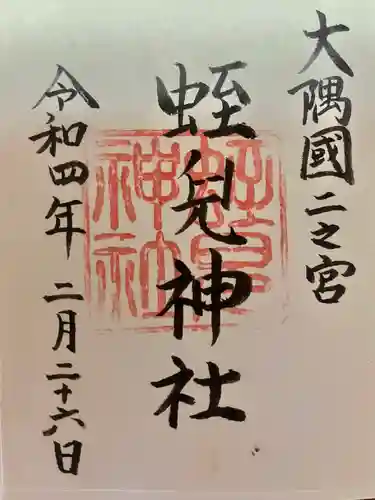 大隅國二之宮
蛭兒神社
令和四年 二月二十六日
蛭兒神社